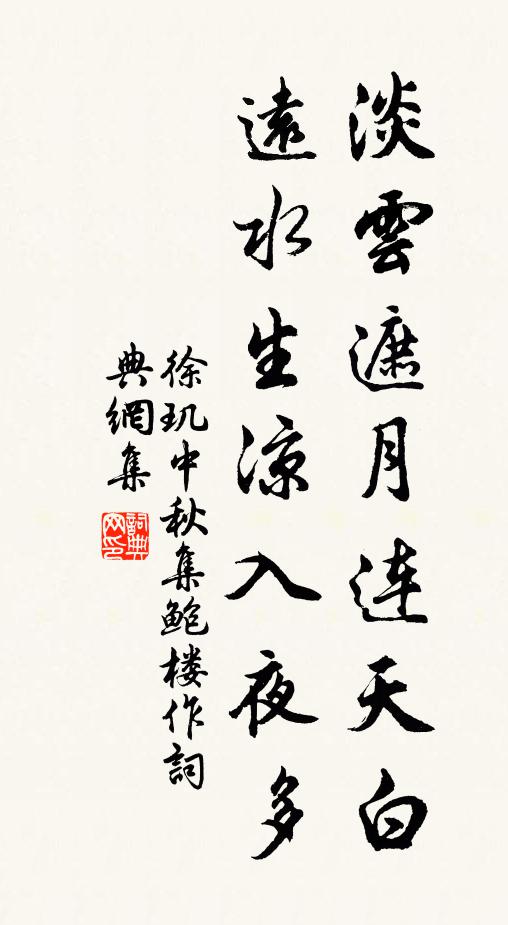 淡雲遮月連天白
遠水生涼入夜多
徐玑中秋集鮑楼作詞
典網集
詞典
网印